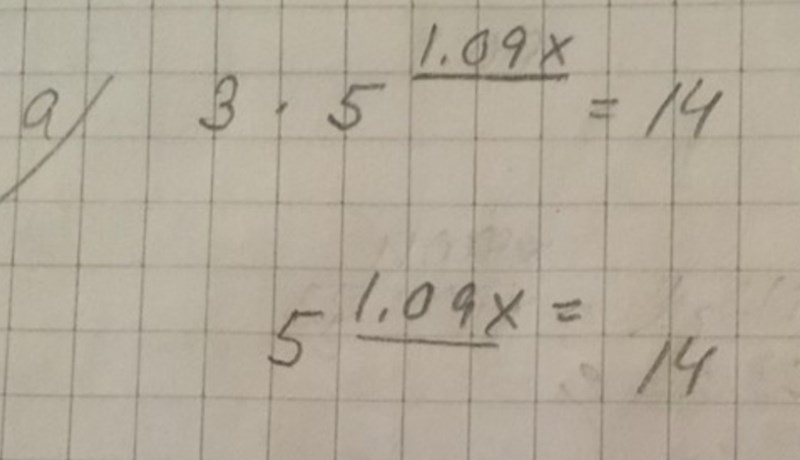 a) 3 · 5^1.09x = 14
5^1.09x = 14